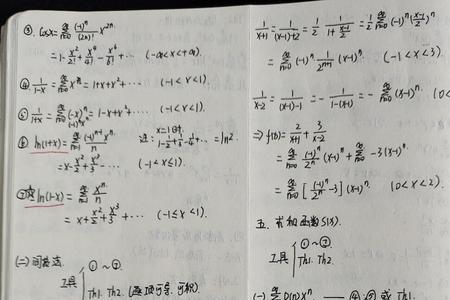 ③. cosx = ∑_{n=0}^{∞} (-1)^n/(2n)! x^{2n}.
= 1 - x²/2! + x⁴/4! - x⁶/6! + ⋯ (-∞<x<+∞).
④ 1/(1-x) = ∑_{n=0}^{∞} x^n = 1+x+x²+⋯ (-1<x<1).
⑤ 1/(1+x) = ∑_{n=0}^{∞} (-x)^n = 1-x+x²+⋯ (-1<x<1).
(-1)^n x^n
⑥ ln(1+x) = ∑_{n=1}^{∞} (-1)^{n-1} x^n/n 注: x=1时
1-1/2+1/3-1/4+⋯ = ln2.
= x - x²/2 + x³/3 - ⋯ (-1<x≤1).
⑦ ln(1-x) = ∑_{n=1}^{∞} x^n/n
= x + x²/2 + x³/3 + ⋯ (-1≤x<1).
(二) 间接法.
工具 { ①~⑦
Th1. Th2. (逐项可导、可积).
1/(x+1) = 1/((x-1)+2) = 1/2 · 1/(1+(x-1)/2) = 1/2 ∑_{n=0}^{∞} (-1)^n ((x-1)/2)^n
= ∑_{n=0}^{∞} (-1)^n 1/2^{n+1} (x-1)^n. (-1<x<3).
1/(x-2) = 1/((x-1)-1) = - 1/(1-(x-1)) = - ∑_{n=0}^{∞} (x-1)^n. (0<
⇒ f(x) = 2/(x+1) + 3/(x-2)
= ∑_{n=0}^{∞} (-1)^n/2^n (x-1)^n + ∑_{n=0}^{∞} -3(x-1)^n.
= ∑_{n=0}^{∞} [(-1)^n/2^n - 3](x-1)^n. (0<x<2).
五. 求和函数S(x).
工具 { ①~⑦
Th1. Th2.